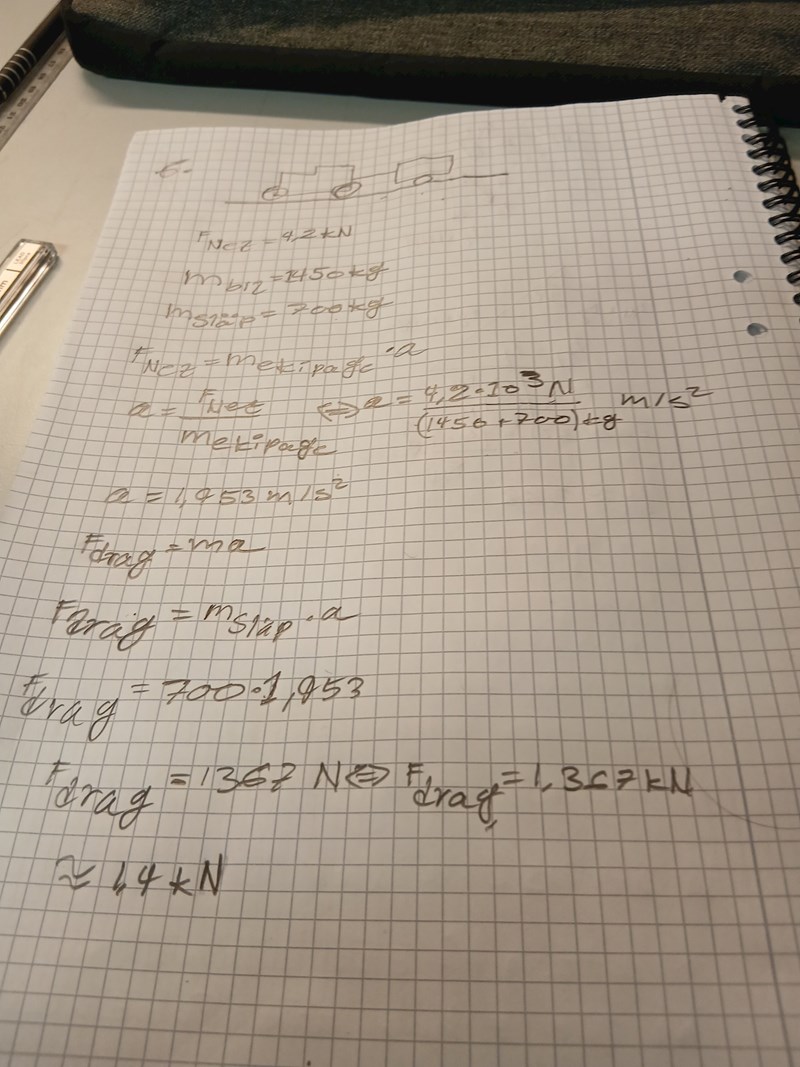 6.
F_Net = 4,2 kN
m_bil = 1450 kg
m_släp = 700 kg
F_Net = m_ekipage · a
a = F_Net / m_ekipage ⇔ a = 4,2 · 10³ N / (1450 + 700) kg m/s²
a = 1,953 m/s²
F_drag = ma
F_drag = m_släp · a
F_drag = 700 · 1,953
F_drag = 1367 N ⇔ F_drag = 1,367 kN
≈ 1,4 kN